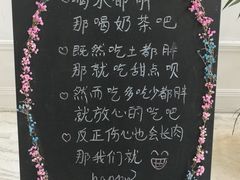 ♡喝水都胖
那喝奶茶吧
♡既然吃土都胖
那就吃甜点呗
♡然而吃多吃少都胖
就放心的吃吧
♡反正伤心也会长肉
那我们就